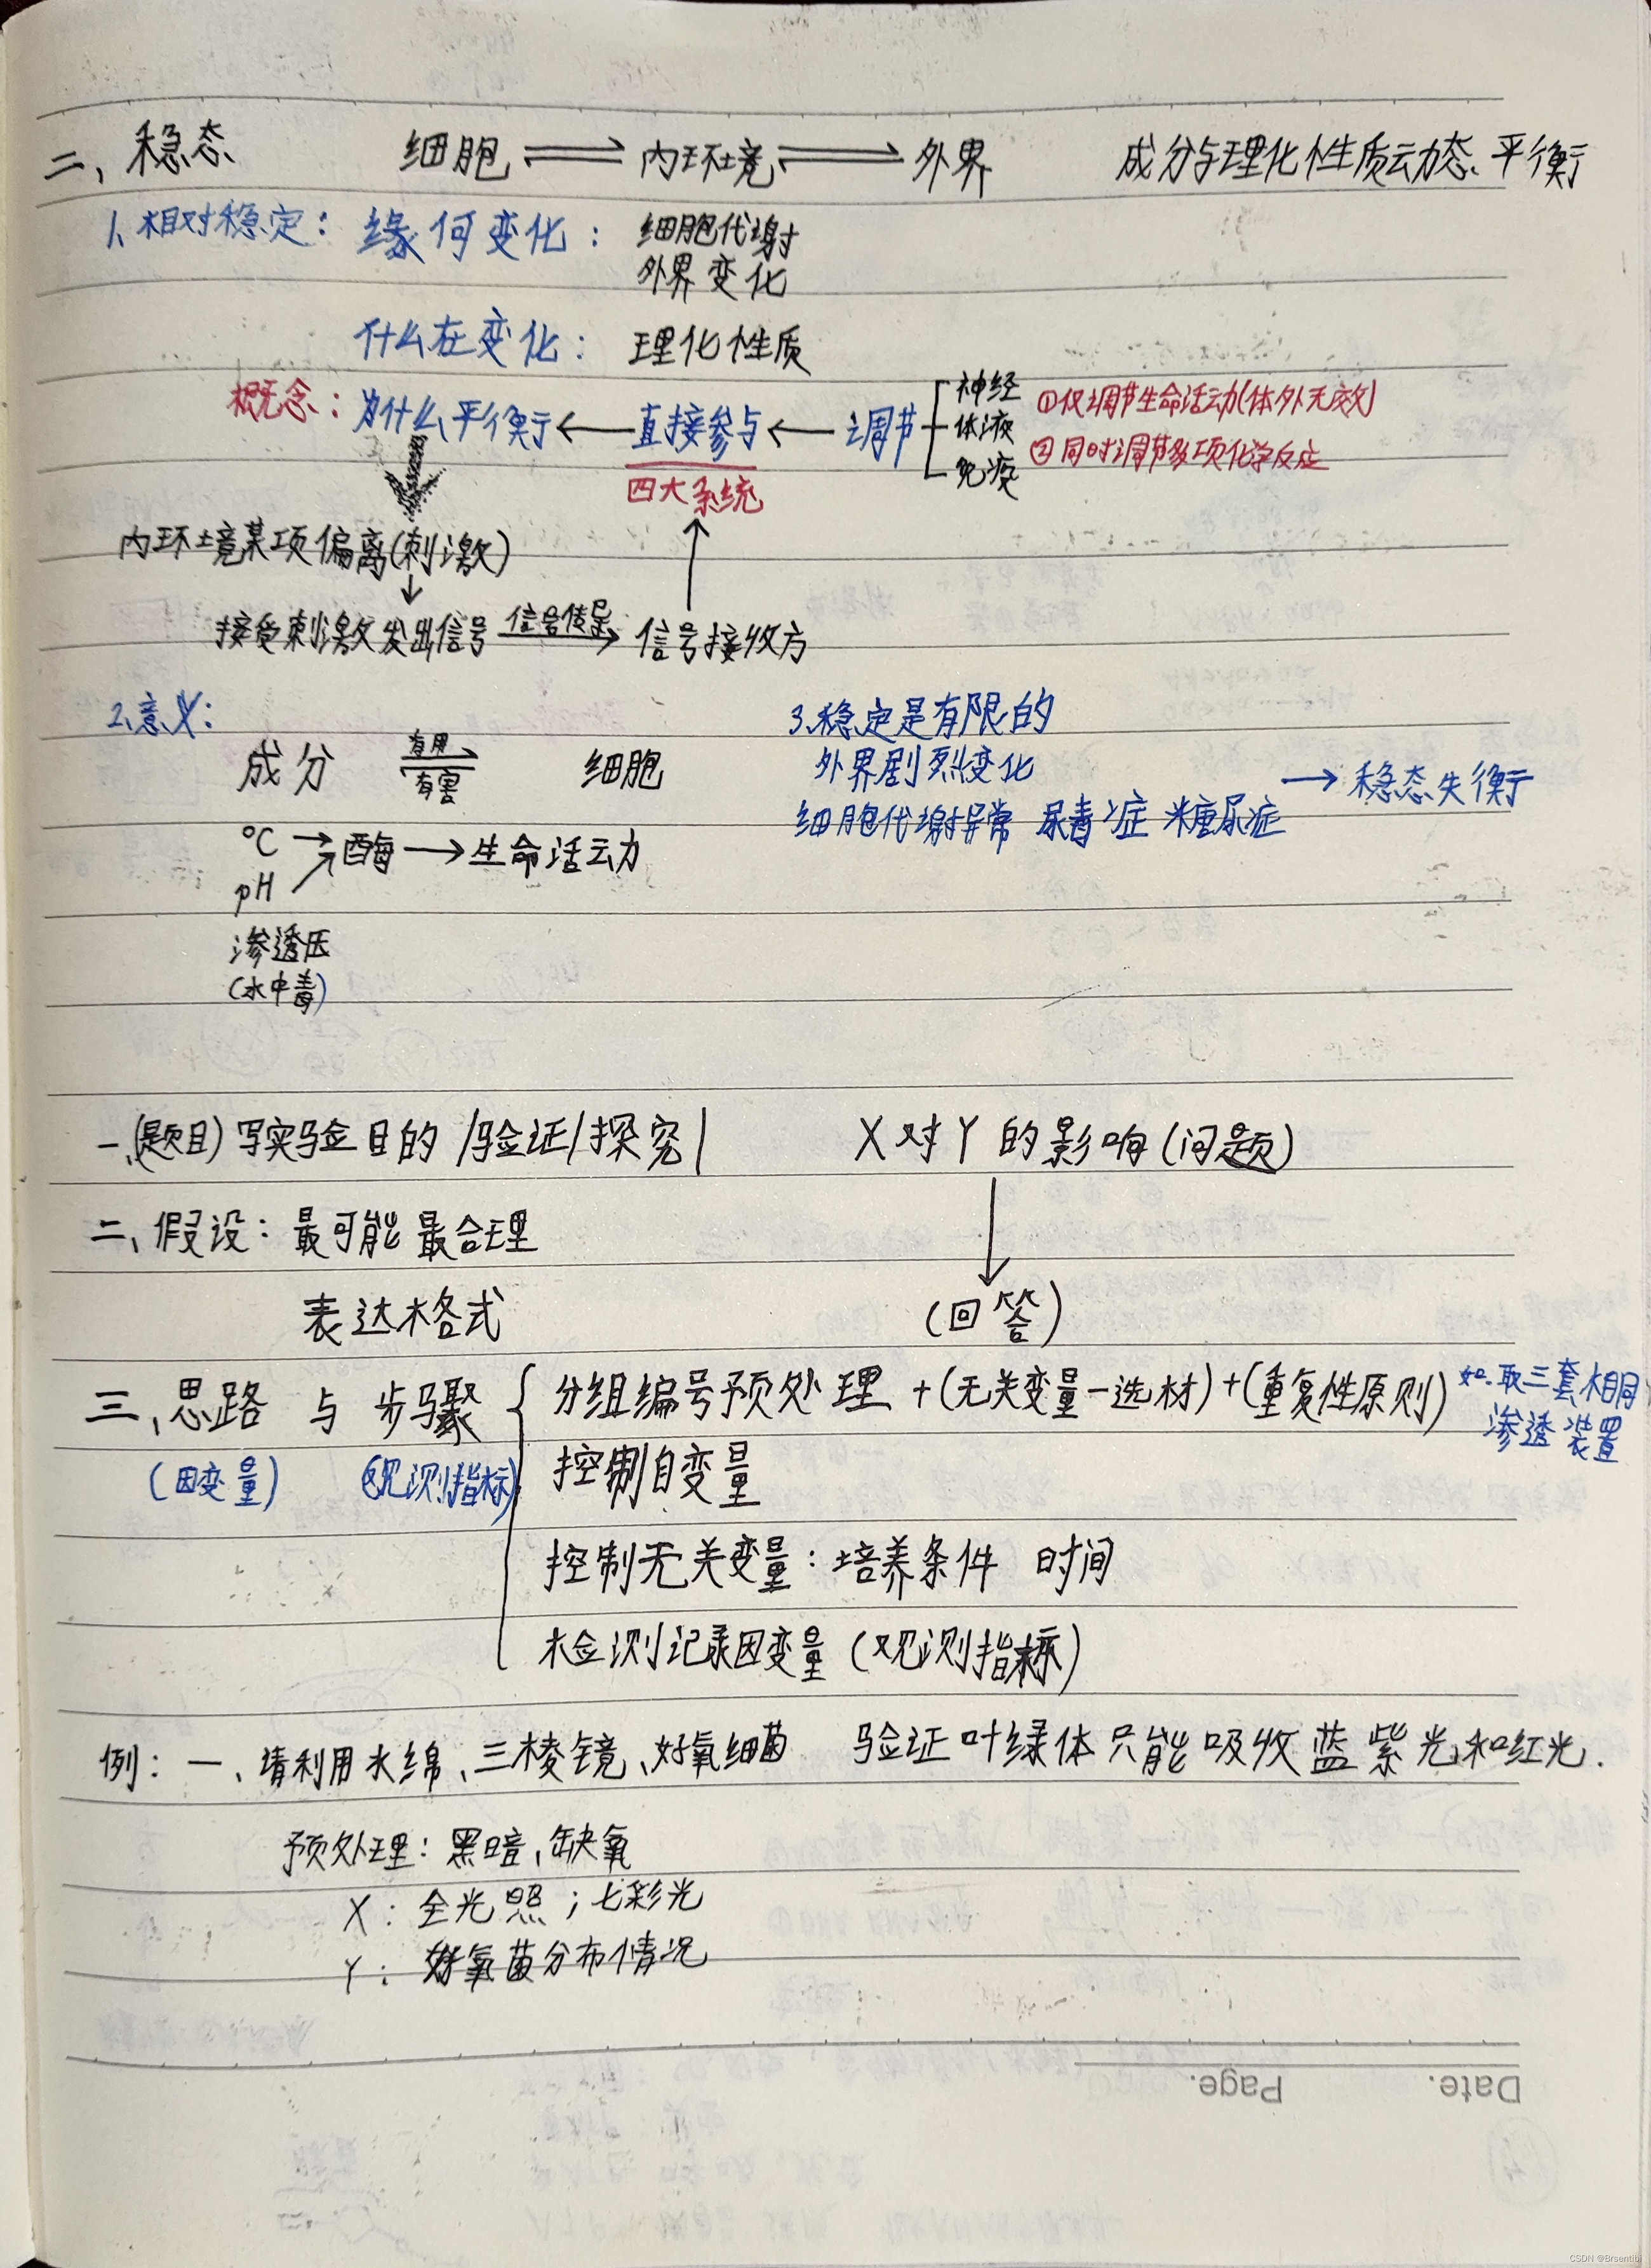 二、稳态 细胞 ⇌ 内环境 ⇌ 外界 成分与理化性质动态平衡
1、相对稳定：缘何变化：细胞代谢
外界变化
什么在变化：理化性质
概念：为什么平衡 ← 直接参与 ← 调节 神经 体液 免疫
①仅调节生命活动(体外无效)
②同时调节多项化学反应
四大系统
内环境某项偏离(刺激)
↓
接受刺激发出信号 信号传导→ 信号接收方
2、意义：
成分 有用 有害 细胞
℃ → 酶 → 生命活动
pH
渗透压
(水中毒)
3.稳定是有限的
外界剧烈变化
细胞代谢异常 尿毒症 糖尿症 → 稳态失衡
一、(题目)写实验目的 /验证/探究/ X对Y的影响(问题)
二、假设：最可能 最合理
表达格式 (回答)
三、思路 与 步骤 分组编号预处理+(无关变量-选材)+(重复性原则) 如.取三套相同
渗透装置
(因变量) (观测指标) 控制自变量
控制无关变量：培养条件 时间
检测记录因变量(观测指标)
例：一、请利用水绵、三棱镜、好氧细菌 验证叶绿体只能吸收蓝紫光和红光.
预处理：黑暗、缺氧
X：全光照；七彩光
Y：好氧菌分布情况
Date. Page.
CSDN @Brsentibi